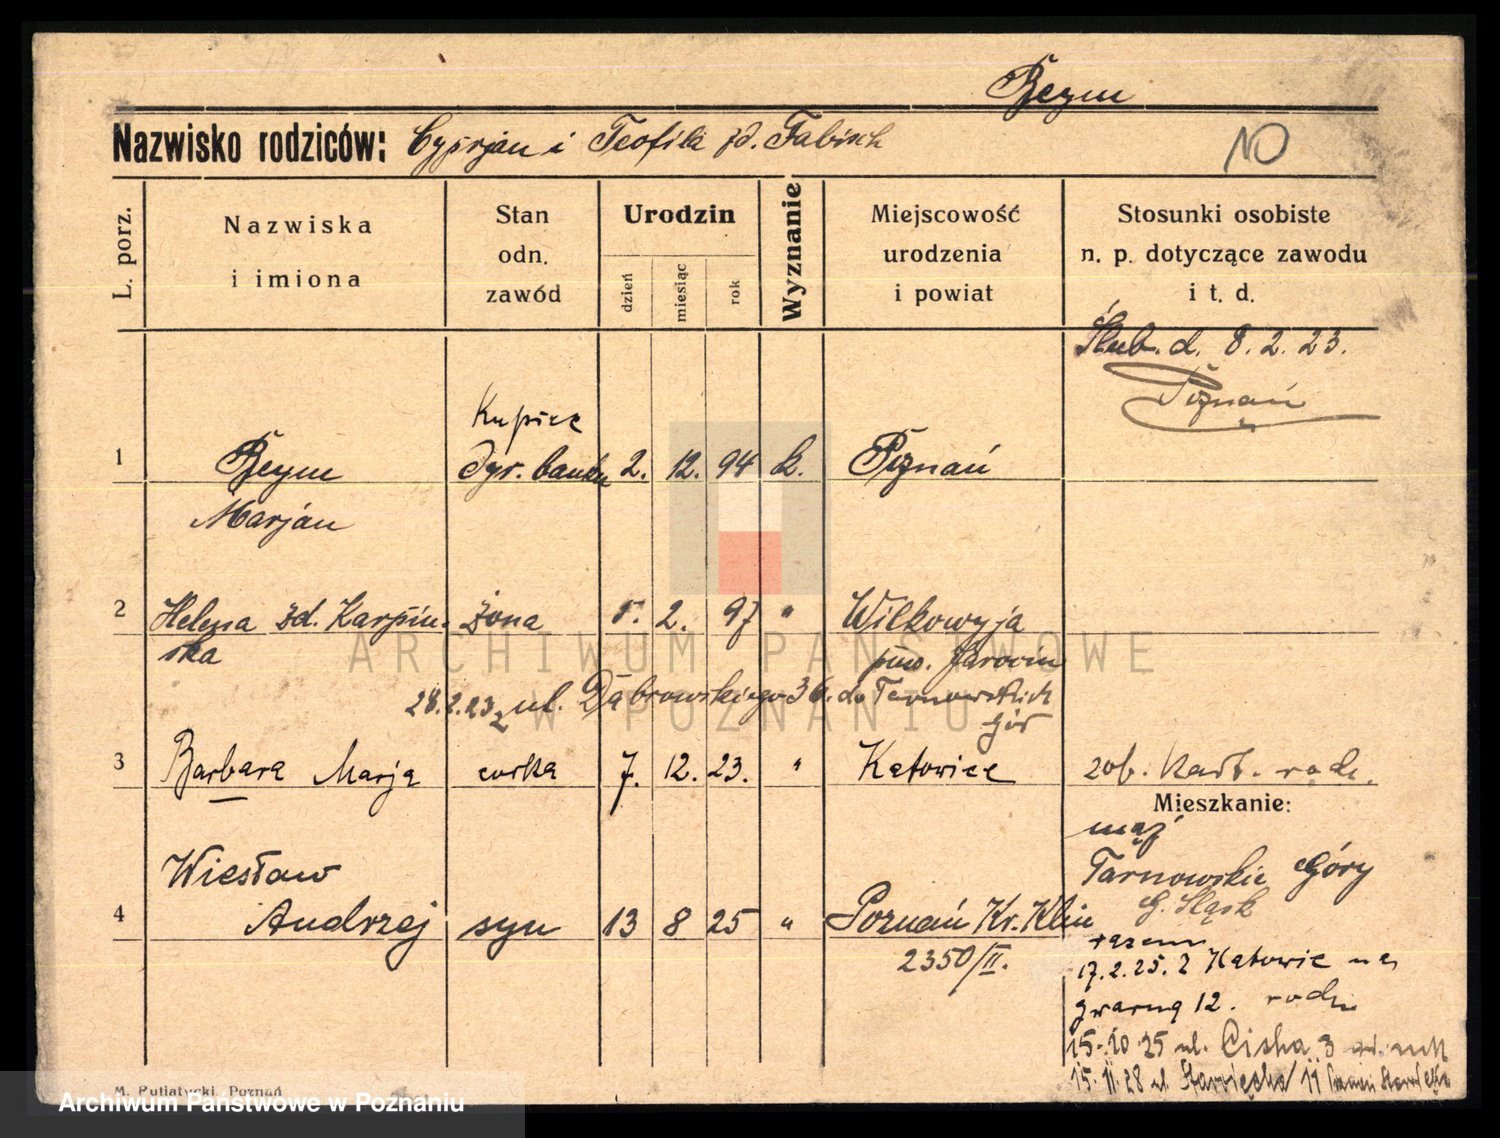 Beym
Nazwisko rodziców: Cyprjan i Teofila zd. Fabisch
10
L. porz.
Nazwiska
i imiona
Stan
odn.
zawód
Urodzin
dzień
miesiąc
rok
Wyznanie
Miejscowość
urodzenia
i powiat
Stosunki osobiste
n. p. dotyczące zawodu
i t. d.
Ślub. d. 8. 2. 23.
Poznań
Kupiec
1 Beym Dyr. banku 2. 12. 94 k. Poznań
Marjan
2 Helena zd. Karpiń- żona 5. 2. 97 " Wilkowyja
ska pow. Jarocin
28.2.23 z ul. Dąbrowskiego 36. do Tarnowskich
Gór
3 Barbara Marja córka 7. 12. 23. " Katowice zob. kart. rodz.
Mieszkanie:
mąż
Tarnowskie Góry
G. Śląsk
Wiesław
4 Andrzej syn 13 8 25 " Poznań Kr. Klin
2350/II.
razem
17.2.25. z Katowic na
gwarną 12. rodz.
15-10-25 ul. Ciska 3
15.11.28 ul. 11
M. Putiatycki, Poznań
ARCHIWUM PAŃSTWOWE
W POZNANIU
Archiwum Państwowe w Poznaniu